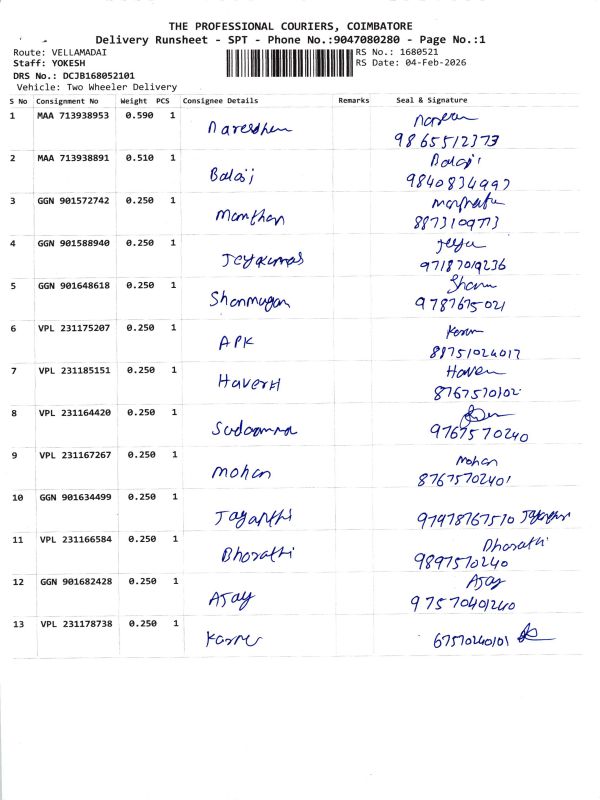 THE PROFESSIONAL COURIERS, COIMBATORE
Delivery Runsheet - SPT - Phone No.:9047080280 - Page No.:1
Route: VELLAMADAI RS No.: 1680521
Staff: YOKESH RS Date: 04-Feb-2026
DRS No.: DCJB168052101
Vehicle: Two Wheeler Delivery
S No Consignment No Weight PCS Consignee Details Remarks Seal & Signature
1 MAA 713938953 0.590 1
9865512373
2 MAA 713938891 0.510 1 Balaji Balaji
3 GGN 901572742 0.250 1 Manthan
8873109773
4 GGN 901588940 0.250 1 Jeykumar
97187019236
5 GGN 901648618 0.250 1 Shanmugan Sham
9787675021
6 VPL 231175207 0.250 1 APK
88751024017
7 VPL 231185151 0.250 1
8767570102
8 VPL 231164420 0.250 1
9767570240
9 VPL 231167267 0.250 1 mohan mohan
87675702401
10 GGN 901634499 0.250 1 Jayanthi 97978767570
11 VPL 231166584 0.250 1 Bharathi Bharathi
9897570240
12 GGN 901682428 0.250 1 Ajay Ajay
97570401240
13 VPL 231178738 0.250 1
67570240101